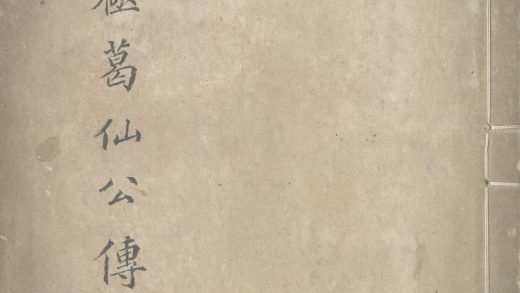 極葛仙公傳